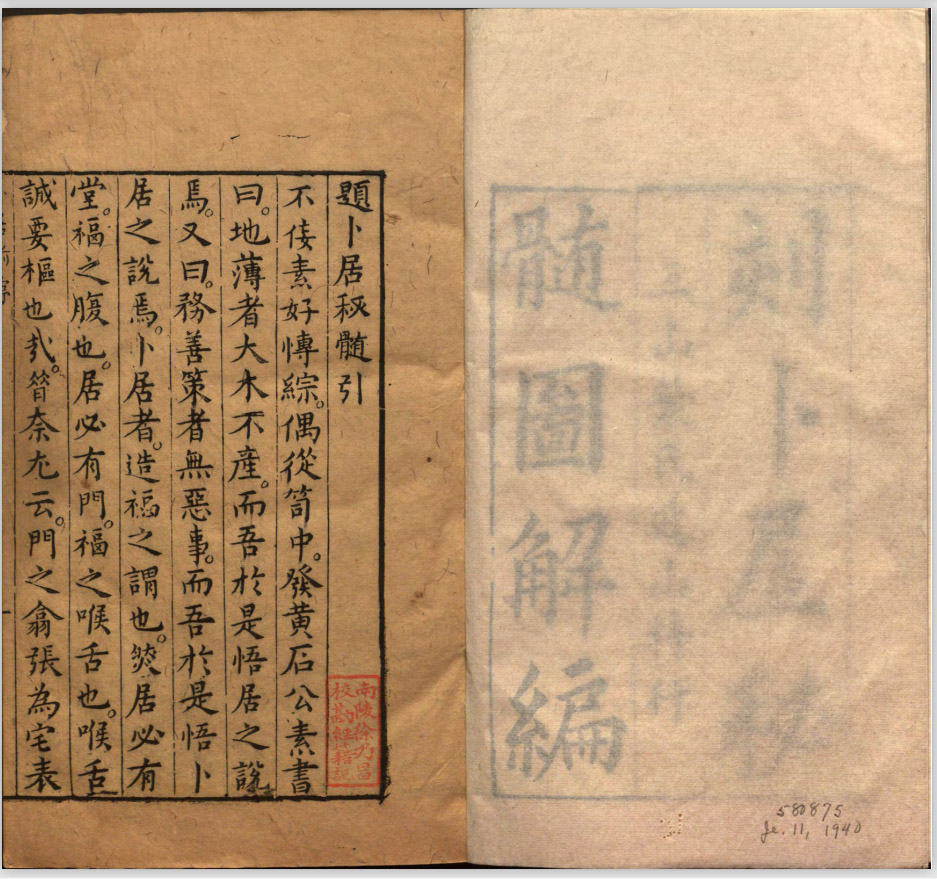 刻卜居
髓圖解編
580875
Je. 11, 1940
題卜居秘髓引
不佞素好慱綜。偶從笥中。發黃石公素書
曰。地薄者大木不產。而吾於是悟居之說
焉。又曰。務善策者無惡事。而吾於是悟卜
居之說焉。卜居者。造福之謂也。然居必有
堂。福之腹也。居必有門。福之喉舌也。喉舌
誠要樞也㢤。奈云。門之翕張為宅表
南陵徐乃昌
校勘經籍記